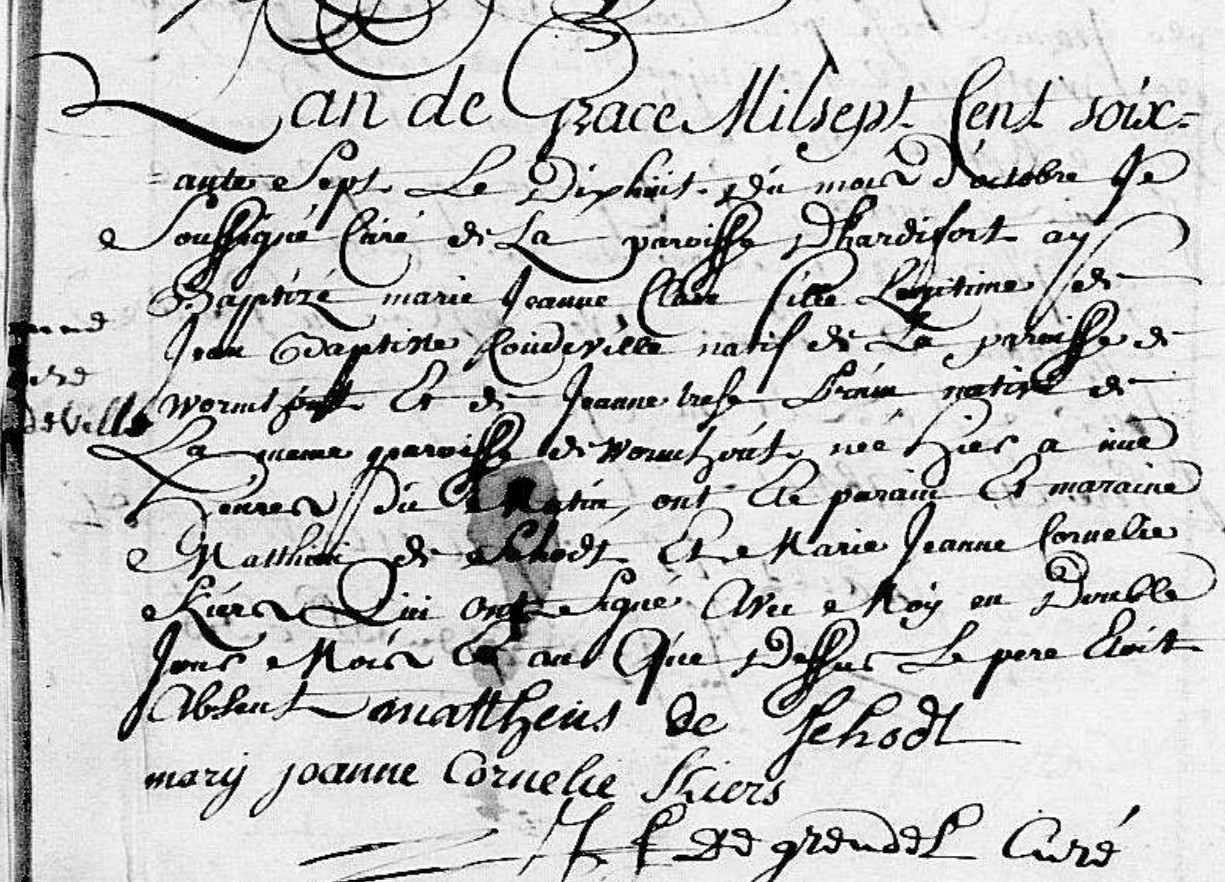 Lan de Grace Mil sept Cent soix=
=ante Sept Le Dixhuit du mois d'octobre Je
Soussigné Curé de La paroisse Dhardifort ay
Baptizé marie Jeanne Claire fille Légitime de
Jean Baptiste Coudeville natif de La paroisse de
Wormhout Et de Jeanne native de
La meme paroisse de wormhout née hier a
heures du Matin, ont Eté parain Et maraine
Mattheus de Schodt Et Marie Jeanne Cornelie
Skiers Qui ont Signé Avec Moy en Double
Jour Mois Et an Que Dessus Le pere Etoit
Absent mattheus de Schodt
marij joanne Cornelie Skiers
De grendel Curé
deville